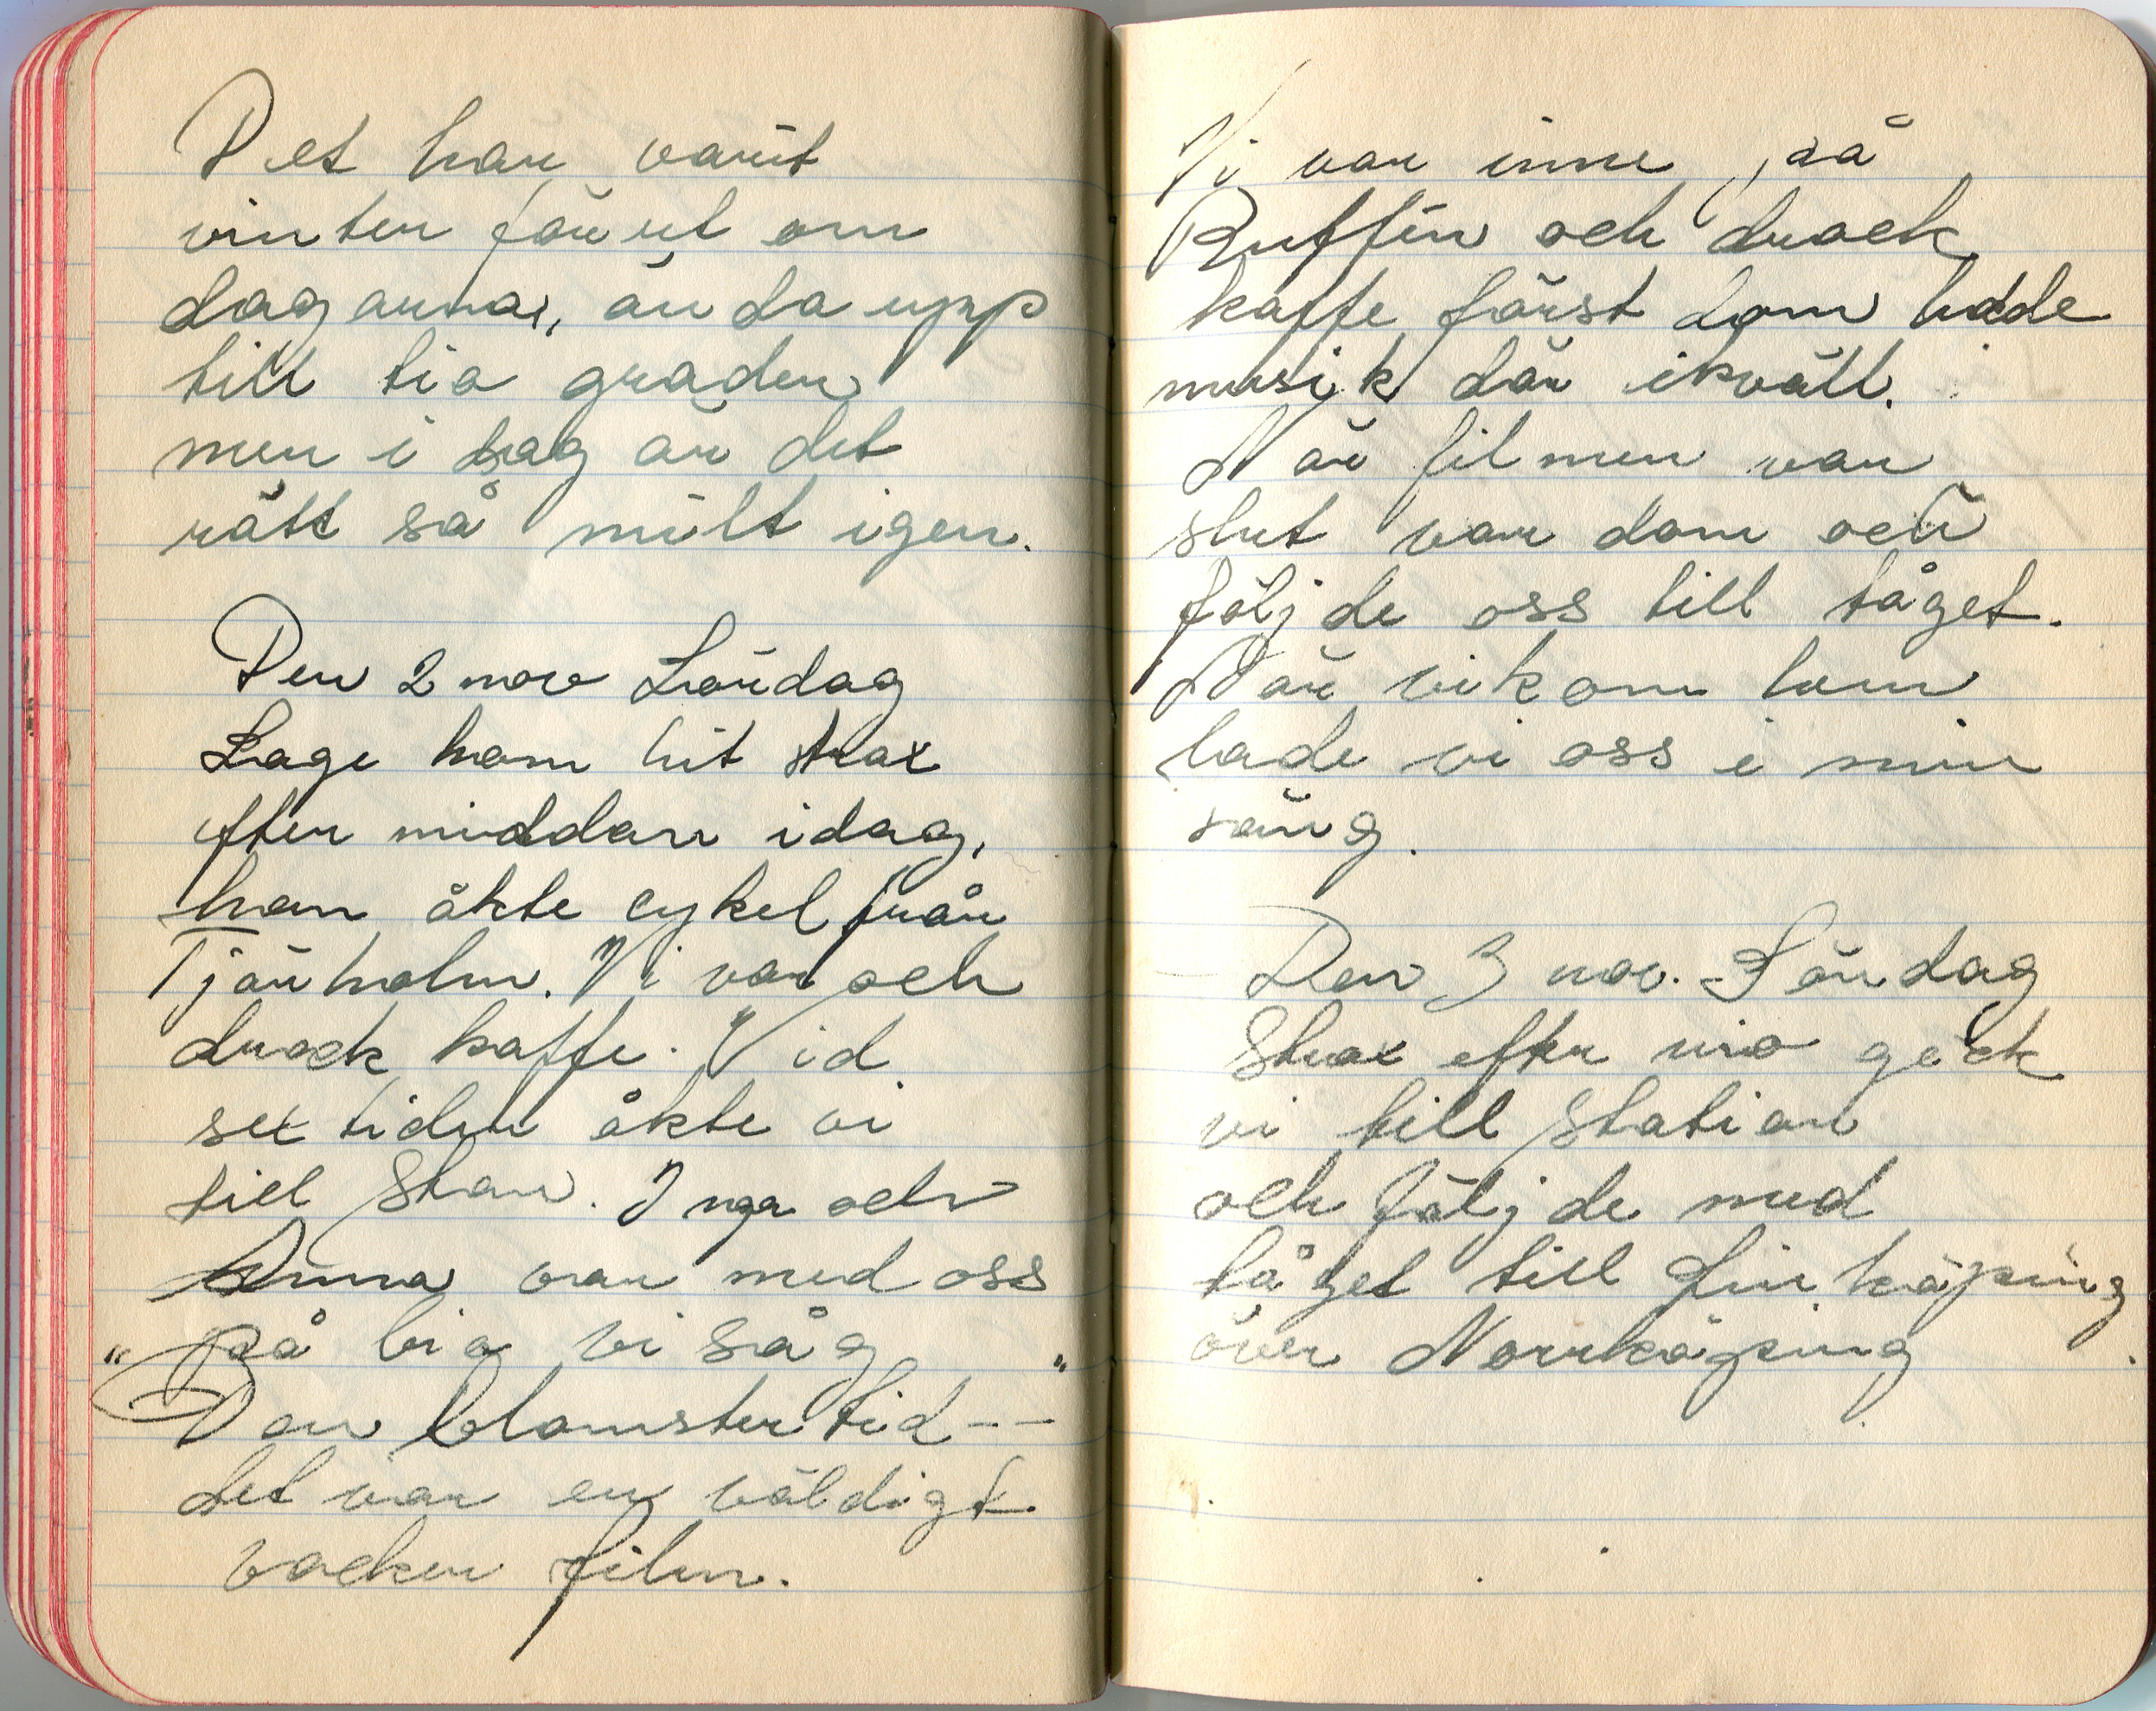 Det har varit
vinter förut om
dagarna, ända upp
till tio grader
men i dag är det
rätt så milt igen.
Den 2 nov Lördag
Lage kom hit strax
efter middan idag,
han åkte cykel från
Tjärholm. Vi var och
drack kaffe. Vid
sex tiden åkte vi
till Stan. Inga och
Anna var med oss
på bio vi såg
"Den blomstertid--"
det var en väldigt
vacker film.
Vi var inne på
Buffin och drack
kaffe först dom hade
musik där ikväll.
När filmen var
slut var dom och
följde oss till tåget.
När vi kom hem
lade vi oss i min
säng.
Den 3 nov. Söndag
Strax efter nio geck
vi till station
och följde med
tåget till Linköping
över Norrköping.